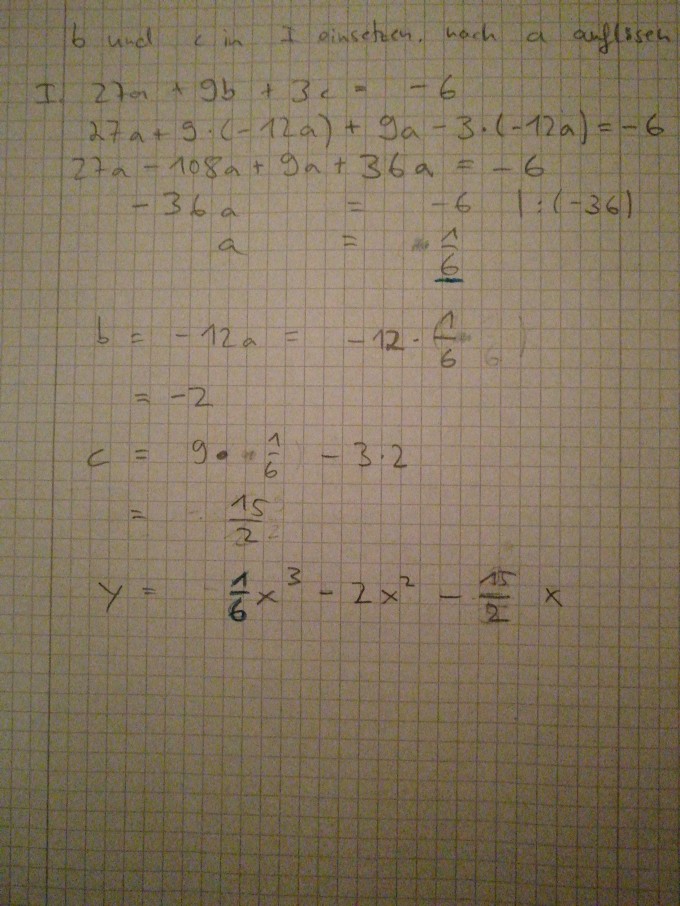 b und c in I einsetzen. nach a auflösen
I. 27a + 9b + 3c = -6
27a + 9·(-12a) + 9a - 3·(-12a) = -6
27a - 108a + 9a + 36a = -6
-36a = -6 |:(-36)
a = 1/6
b = -12a = -12· 1/6
= -2
c = 9· 1/6 - 3·2
= 15/2
y = 1/6 x³ - 2x² - 15/2 x